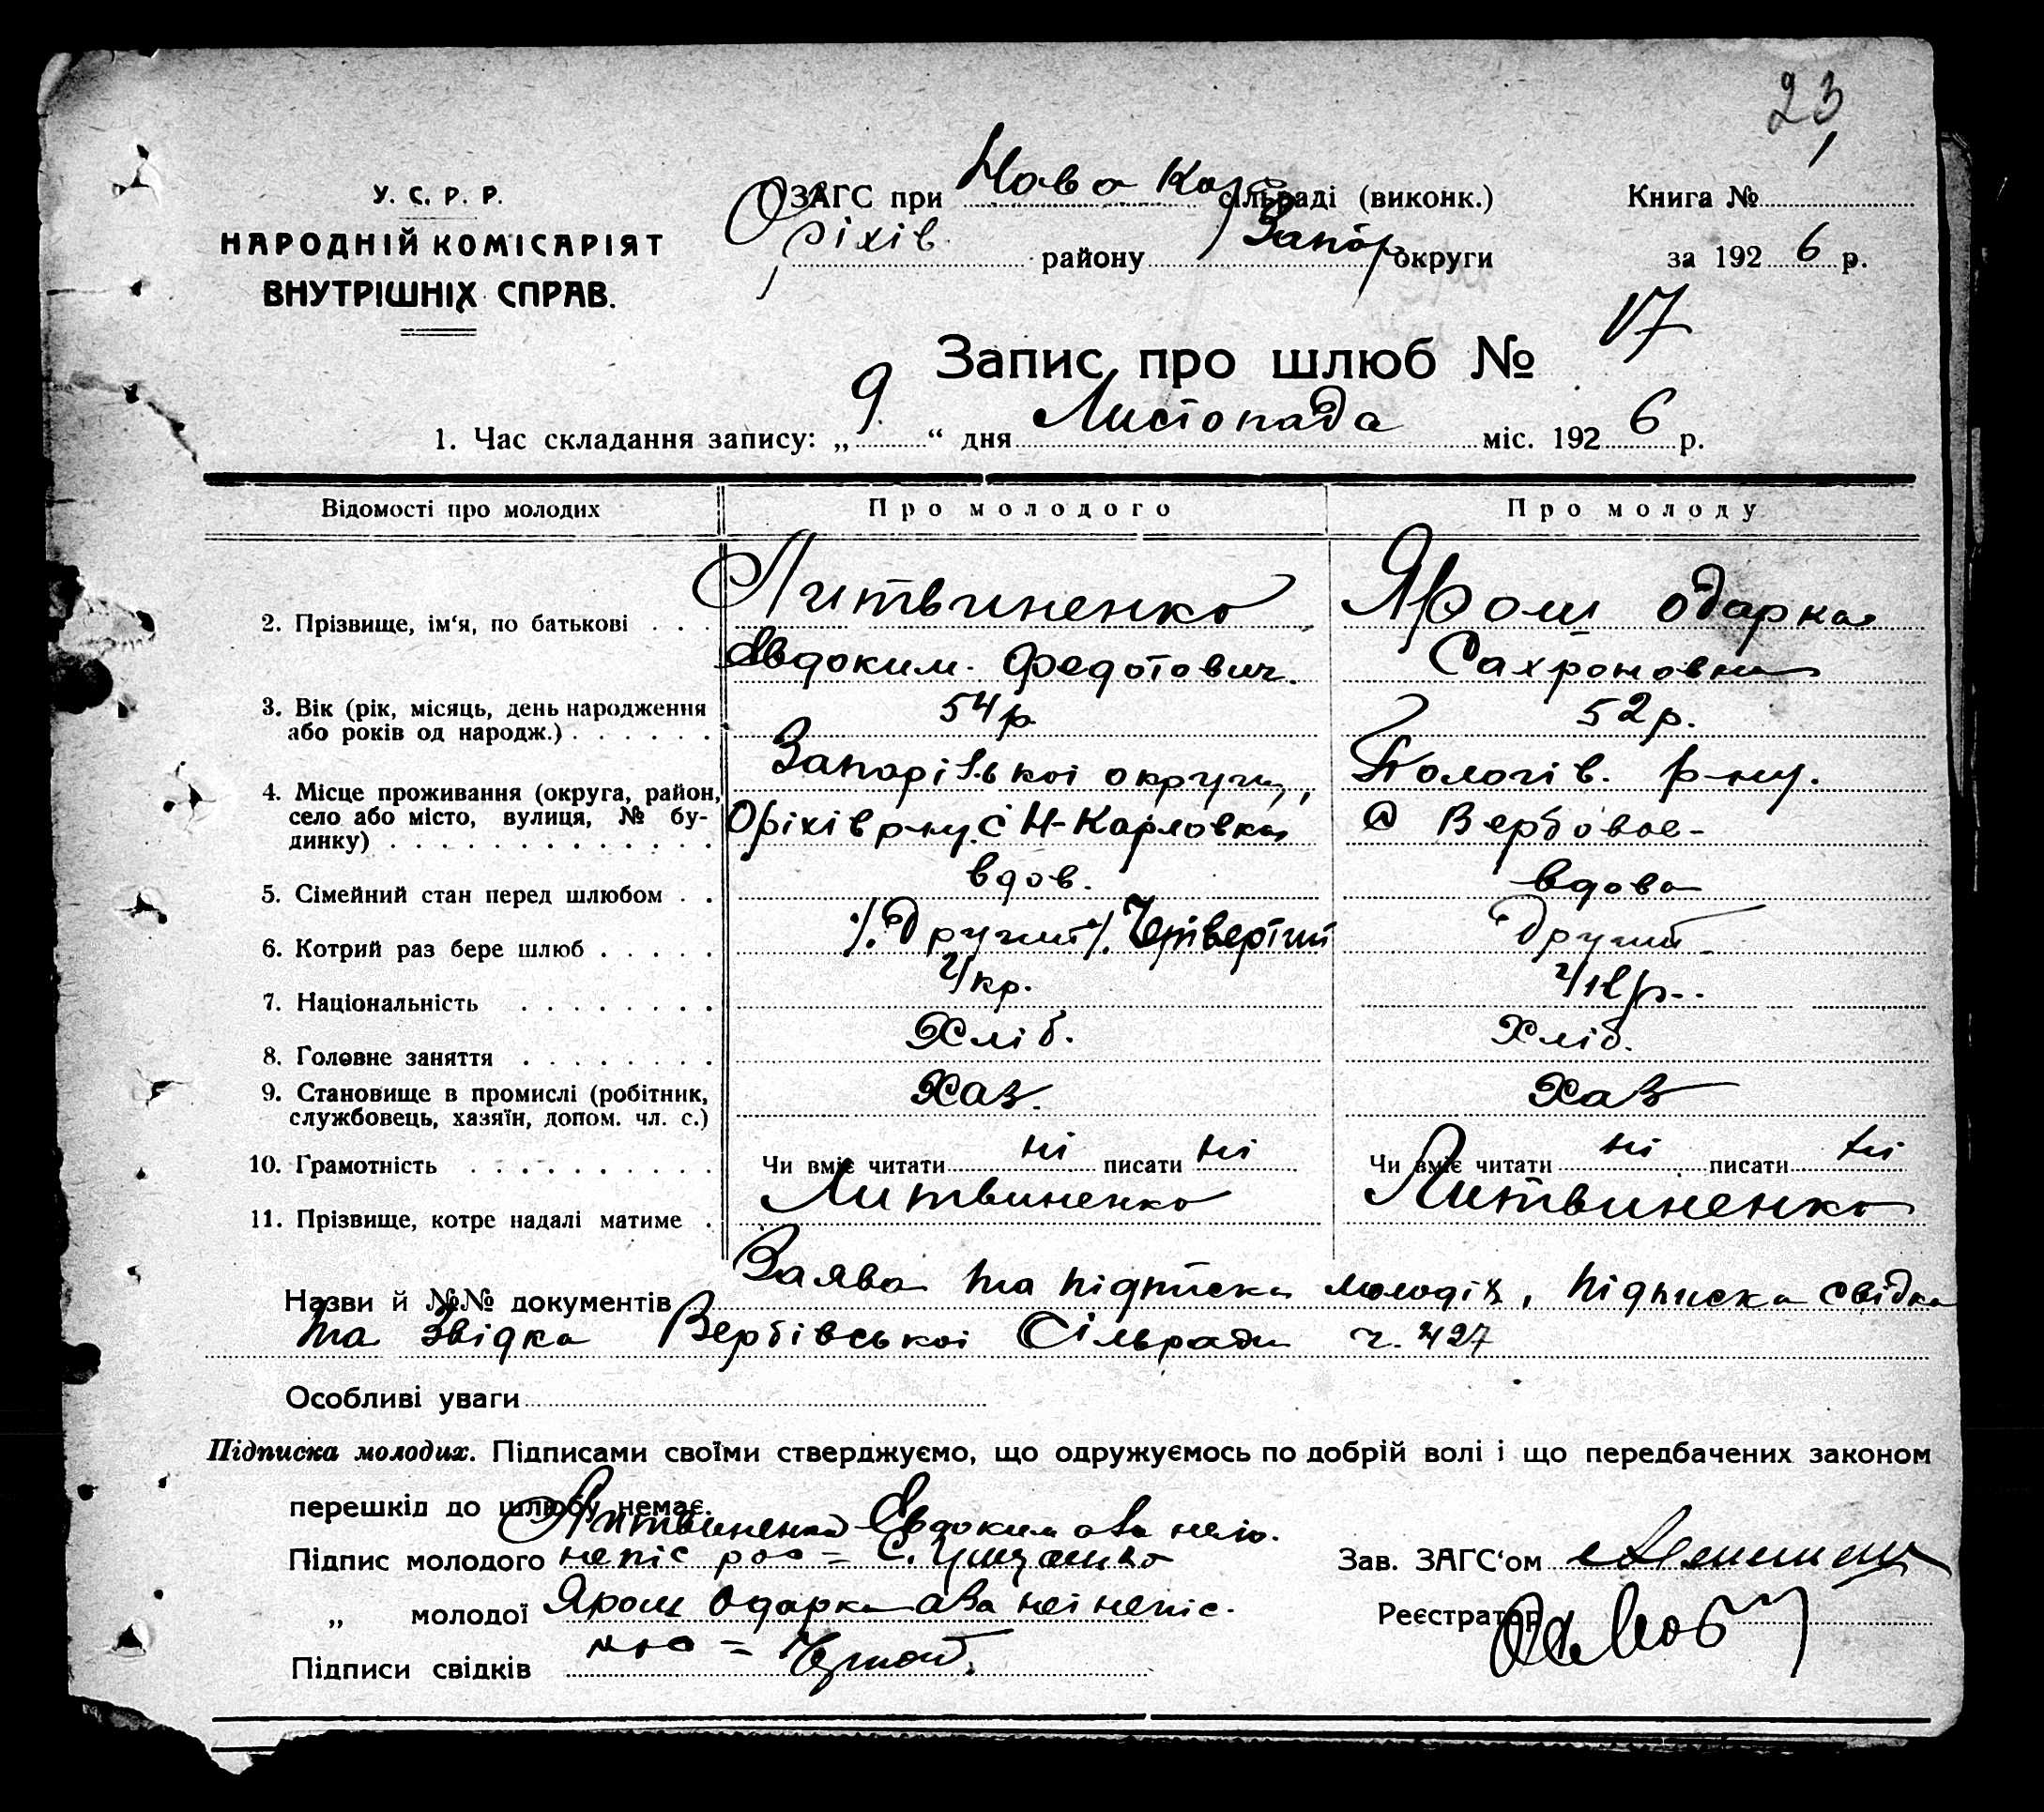 23
У. С. Р. Р.
НАРОДНІЙ КОМІСАРІЯТ
ВНУТРІШНІХ СПРАВ.
ЗАГС при Ново Кар сільраді (виконк.)
Оріхів району Запор округи
Книга №
за 1926 р.
Запис про шлюб № 17
1. Час складання запису: „9“ дня Листопада міс. 1926 р.
Відомості про молодих Про молодого Про молоду
2. Прізвище, ім'я, по батькові . . . Литвиненко Ярош Одарка
Євдоким Федотович. Сахроновна
3. Вік (рік, місяць, день народження 54 р. 52 р.
або років од народж.) . . . . . .
4. Місце проживання (округа, район, Запорізької округи, Пологів. р-ну.
село або місто, вулиця, № бу- Оріхів р-ну с Н-Карловка с Вербовое-
динку) . . . . . . . . . . . . .
5. Сімейний стан перед шлюбом . . вдов. вдова
6. Котрий раз бере шлюб . . . . . /. Другий /. Четвертий Другий
7. Національність . . . . . . . Укр. Укр.
8. Головне заняття . . . . . . . . Хліб. Хліб.
9. Становище в промислі (робітник, Хаз. Хаз
службовець, хазяїн, допом. чл. с.)
10. Грамотність . . . . . . . . . . Чи вміє читати ні писати ні Чи вміє читати ні писати ні
11. Прізвище, котре надалі матиме . Литвиненко Литвиненко
Назви й №№ документів Заява та підписка молодіх, підписка свідка
та Звідка Вербівської Сільради ч. 427
Особливі уваги
Підписка молодих. Підписами своїми стверджуємо, що одружуємось по добрій волі і що передбачених законом
перешкід до шлюбу немає.
Литвиненко Євдоким а за него
Підпис молодого непіс С.
Зав. ЗАГС'ом
„ молодої Ярош Одарка а за неї непіс.
Реєстратор
Підписи свідків